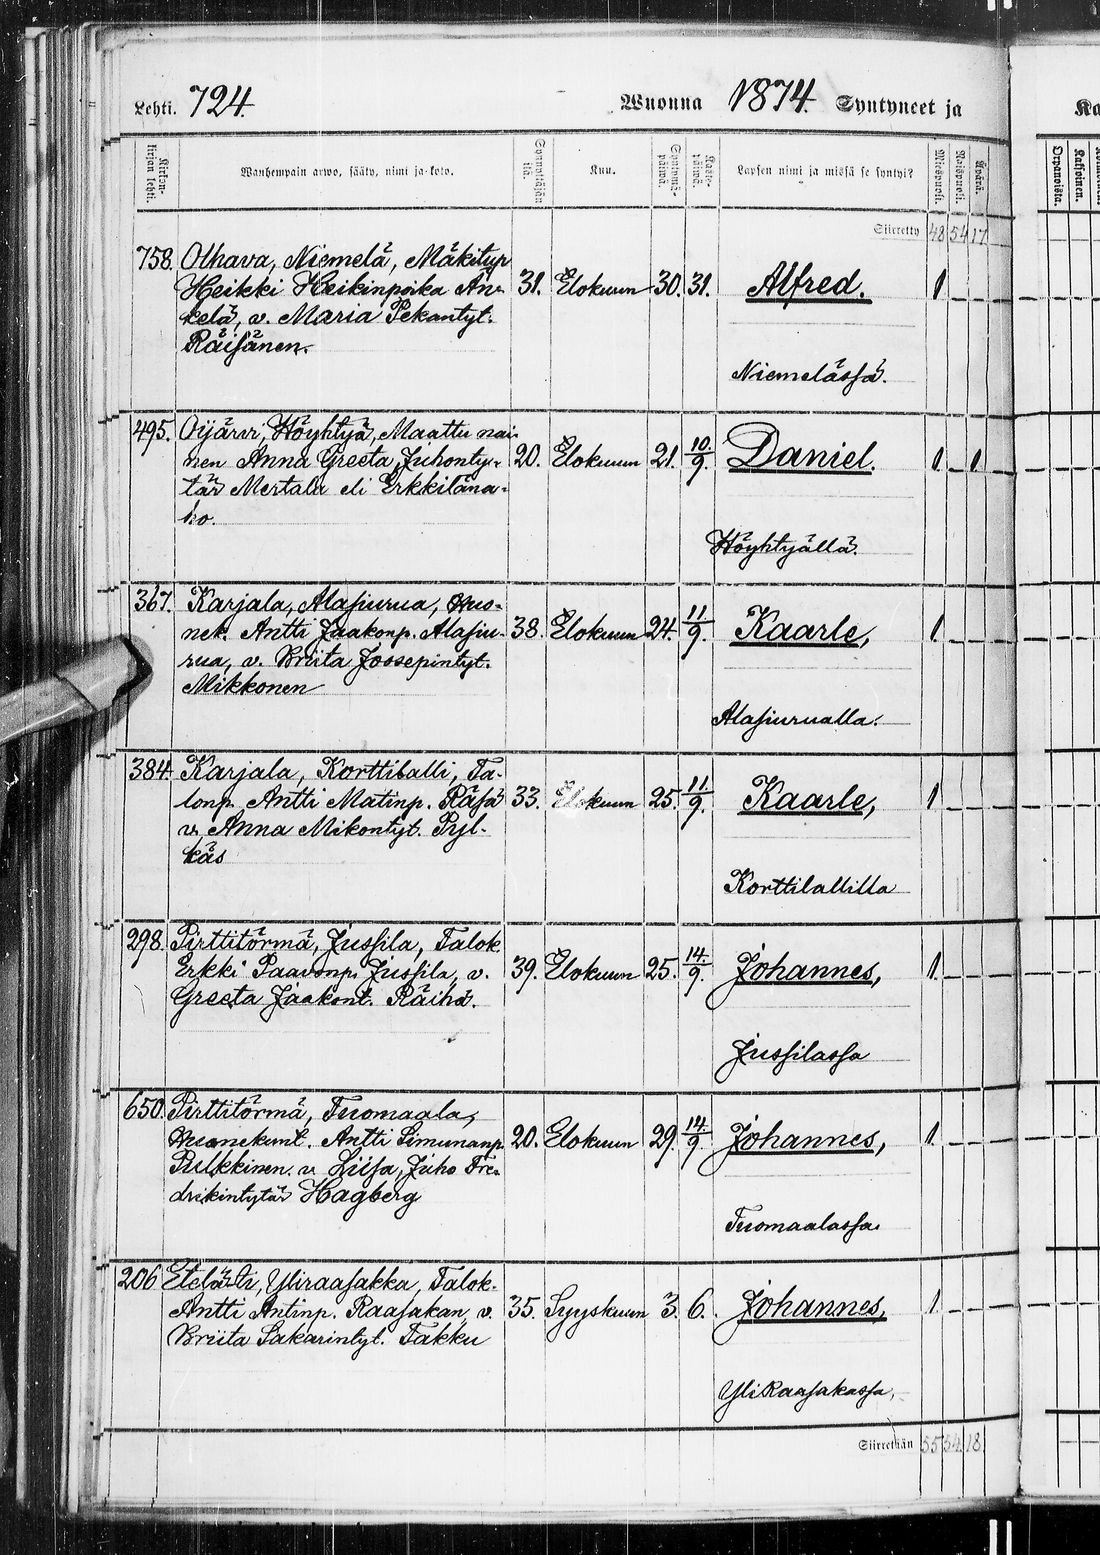 Lehti. 724.
Wuonna 1874. Syntyneet ja
Kirkon-
kirjan lehti.
Wanhempain arwo, sääty, nimi ja koto.
Synnyttäjän
ikä.
Kuu.
Syntymä-
päiwä.
Kaste-
päiwä.
Lapsen nimi ja missä se syntyi?
Miespuoli.
Waispuoli.
Äpärä.
Siirretty 48 54 17
758. Olhava, Niemelä, Mäkitup
Heikki Heikinpoika An- 31. Elokuun 30. 31. Alfred. 1
kelä, v. Maria Pekantyt.
Räisänen.
Niemelässä.
495. Oijärvi, Höyhtyä, Maattu nai-
nen Anna Greeta Juhonty- 20. Elokuun 21. 10/9. Daniel. 1 1
tär Mertala eli Erkkiläna-
ho.
Höyhtyällä.
367. Karjala, Alasiurua, Huo-
nek. Antti Jaakonp. Alasiu- 38. Elokuun 24. 11/9. Kaarle, 1
rua, v. Briita Joosepintyt.
Mikkonen
Alasiurualla.
384. Karjala, Korttiballi, Ta-
lonp. Antti Matinp. Räsä 33. Elokuun 25. 11/9. Kaarle, 1
v. Anna Mikontyt. Pyl-
käs
Korttiballilla
298. Pirttitörmä, Jussila, Talok.
Erkki Paavonp. Jussila, v. 39. Elokuun 25. 14/9. Johannes, 1
Greeta Jaakont. Räihä.
Jussilassa
650. Pirttitörmä, Tuomaala,
Huonekunt. Antti Simunanp. 20. Elokuun 29. 14/9. Johannes, 1
Pulkkinen v. Liisa, Juho Fre-
drikintytär Hagberg
Tuomaalassa
206. Yliraasakka, Talok.
Antti Antinp. Raasakan, v. 35. Syyskuun 3. 6. Johannes, 1
Briita Sakarintyt. Takku
YliRaasakassa,
Siirretään 55 54 18
Orpanoista.
Kaksoinen.